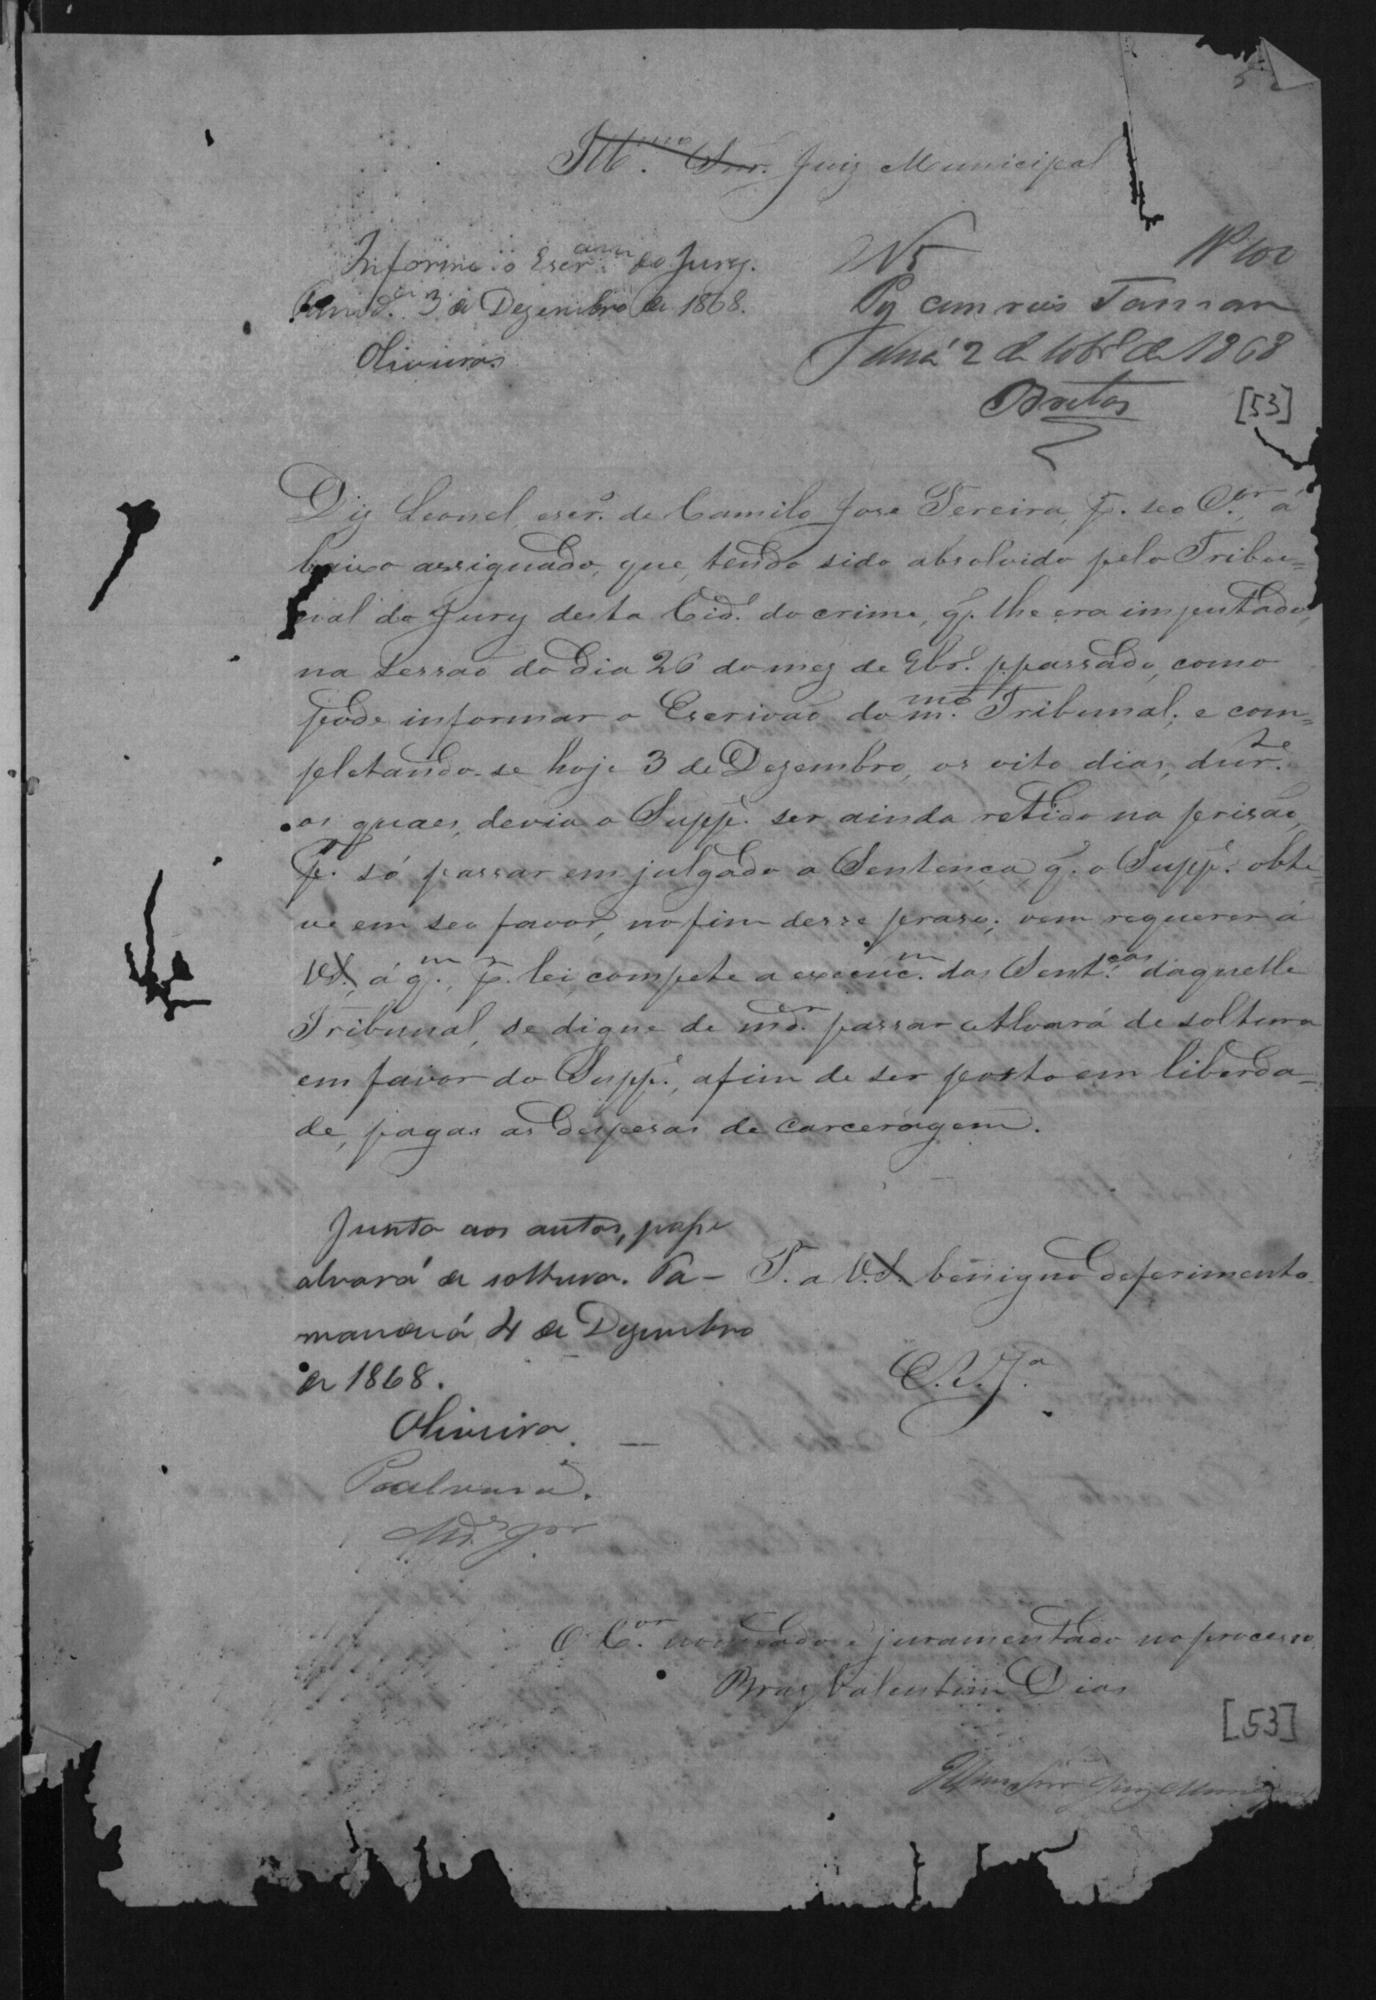 Ill.mo Snr. Juiz Municipal
Informe o Escr.am do Jury.
Pam.da 3 de Dezembro de 1868.
Oliveira
N 5
Nº 100
Pg cem reis Taman
duá 2 de 10br.o de 1868
Brettas
[53]
Diz Leonel, escr.o de Camilo José Pereira, p. seo C.or, a
baixo assignado, que, tendo sido absolvido pelo Tribu=
nal do Jury desta Cid.e do crime, q. lhe era imputado,
na sessão do dia 26 do mez de 9br.o p.passado, como
pode informar o Escrivão do m.mo Tribunal; e com=
pletando-se hoje 3 de Dezembro, os oito dias, dur.te
os quaes, devia o Supp.e ser ainda retido na prisão,
p. só passar em julgado a Sentença, q. o Supp.e obte=
ve em seo favor, no fim desse praso; vem requerer á
V.S., á q.m, p. lei, compete a execuc.m das Sent.cas daquelle
Tribunal, se digne de md.ar passar Alvará de soltura
em favor do Supp.e, afim de ser posto em liberda=
de, pagas as despesas de carceragem.
Junto aos autos, passe
alvará de soltura. Ta-
manduá 4 de Dezembro
de 1868.
Oliveira
P. a V.S. benigno deferimento
E.R.J.a
P. alvará.
O C.or nomeado e juramentado no processo
Braz Valentim Dias
[53]
Illmo Snr Juiz Municipal